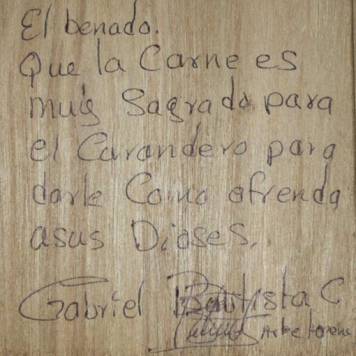 El benado.
Que la Carne es
muy Sagrada para
el Curandero para
darle Como ofrenda
asus Dioses.
Gabriel Bautista C